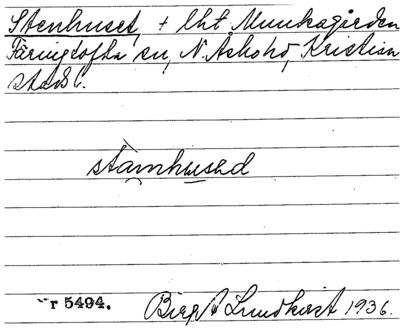 Stenhuset, + lht Munkagården
Färingtofta sn, N. Åsbohd, Kristian
stads l.
stamhusəd
Nr 5494. Birgit Lundkvist 1936.